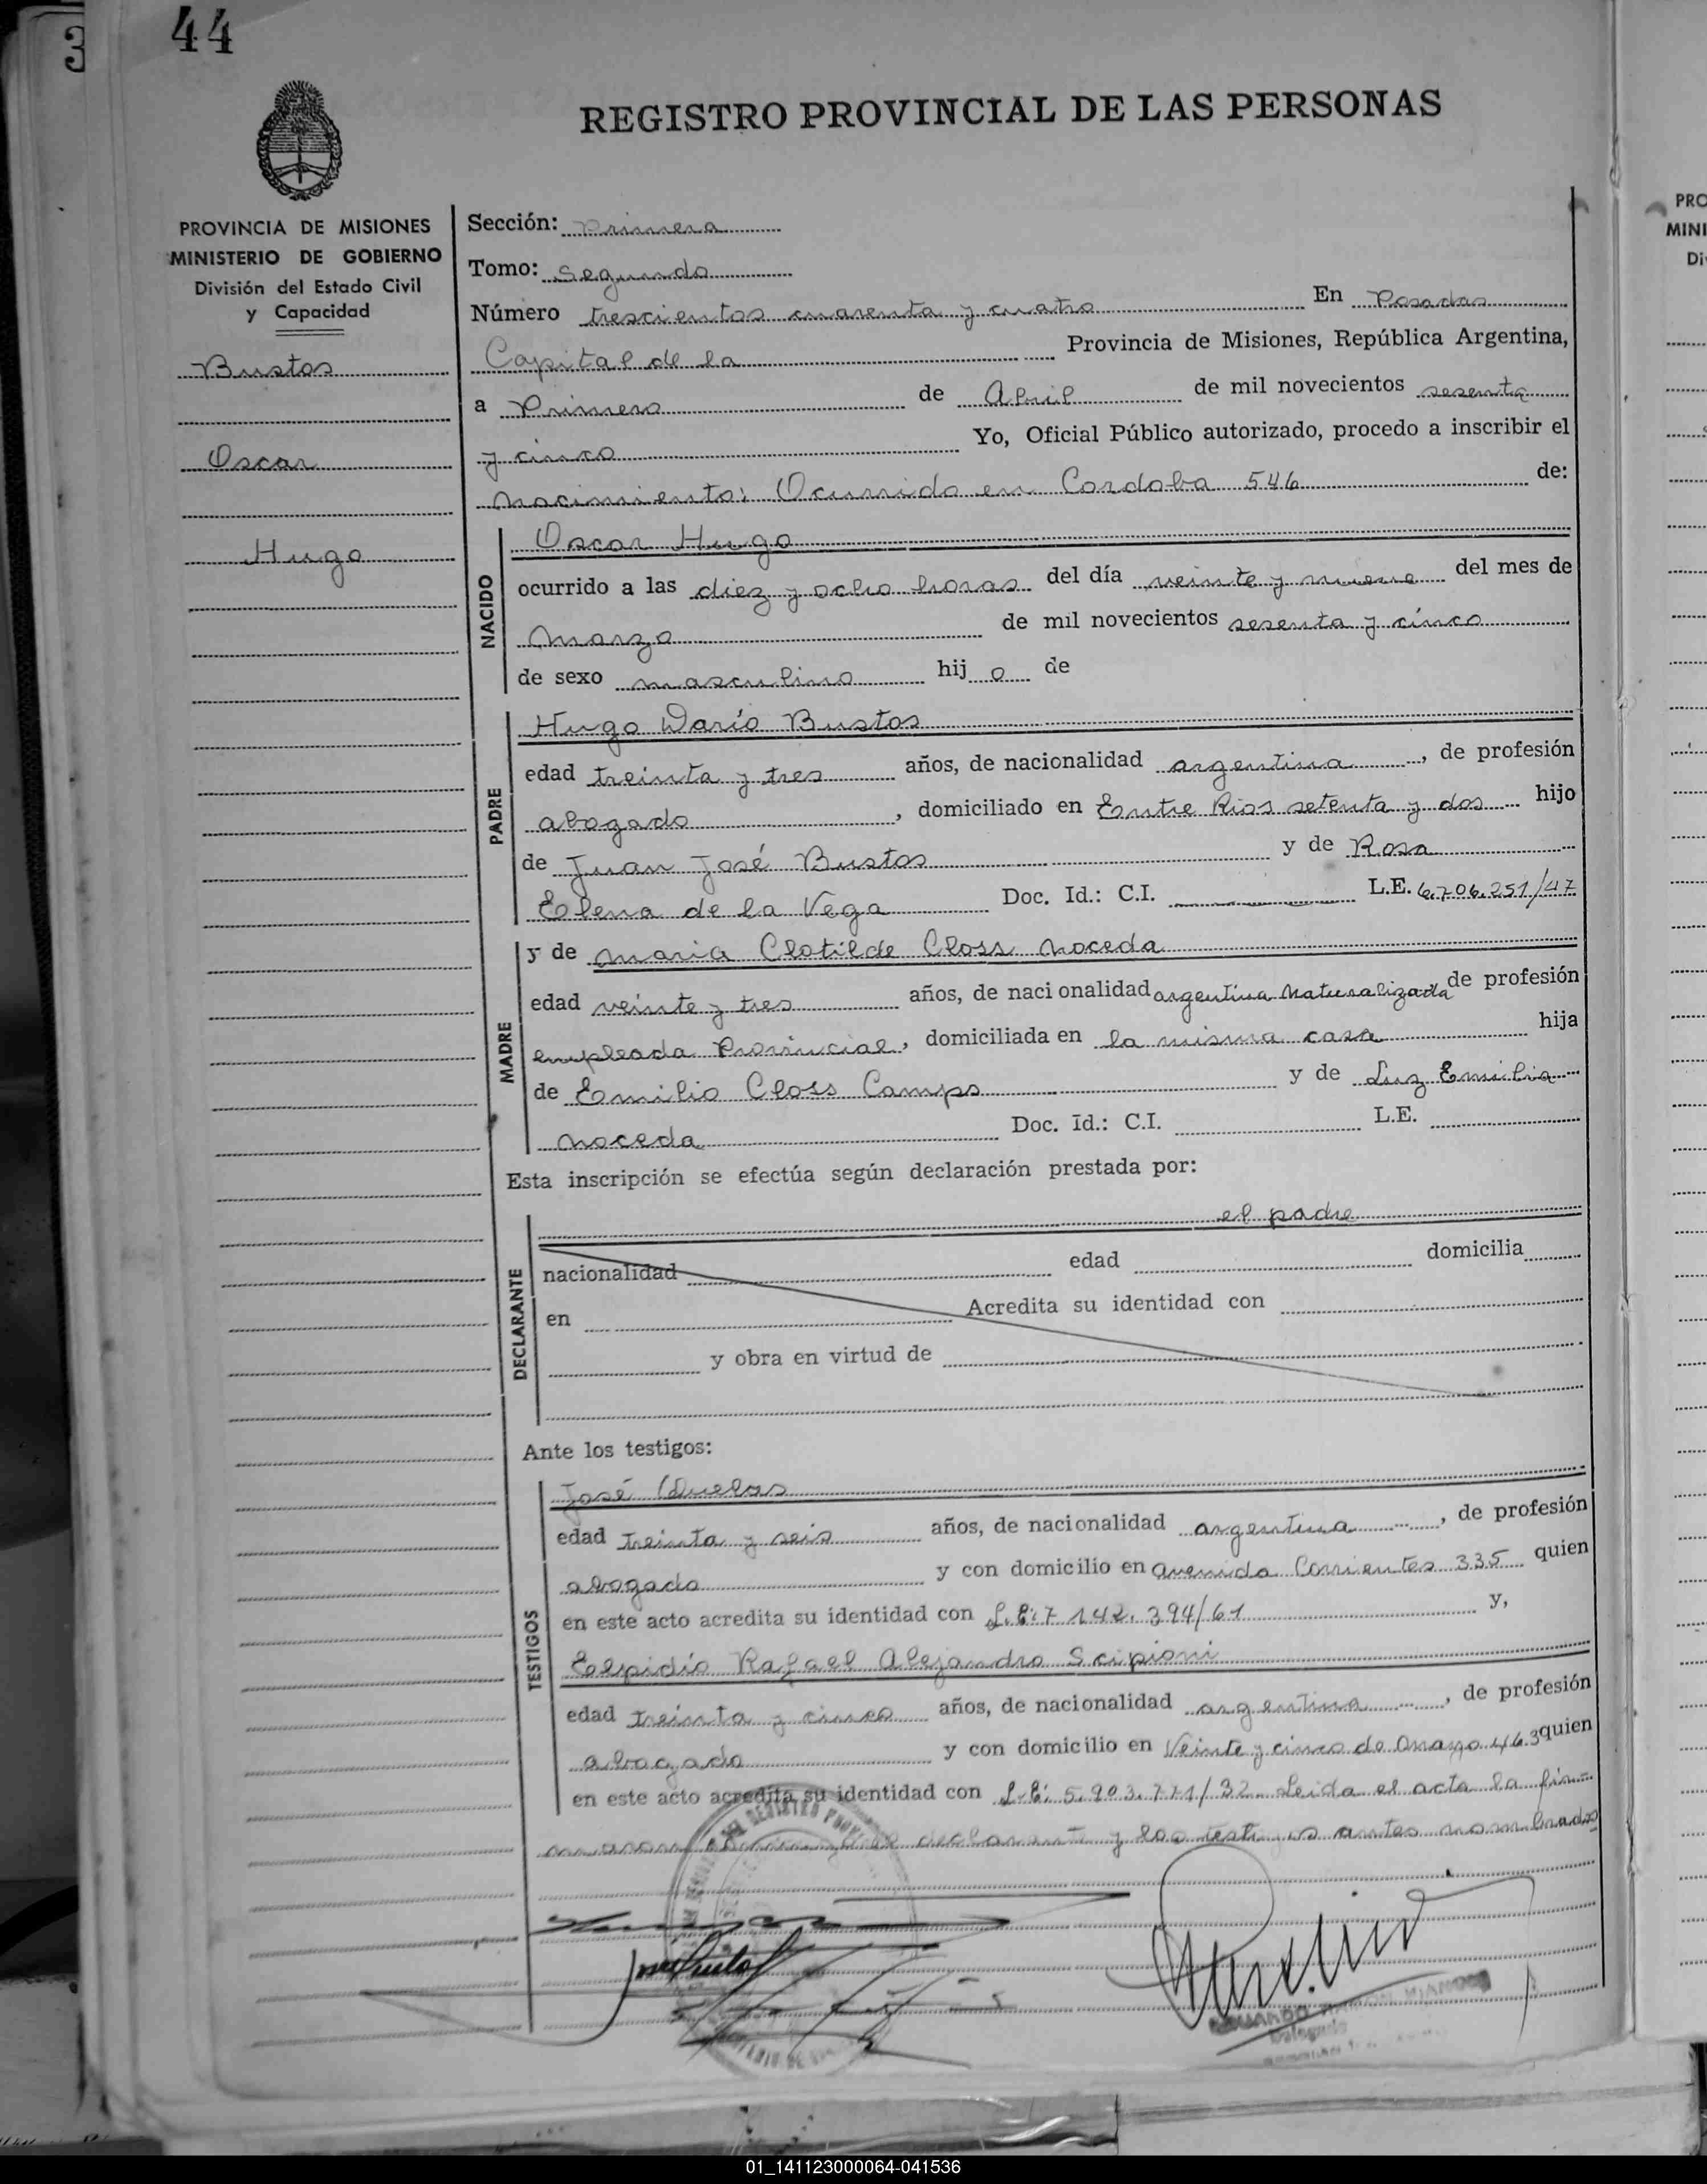 3
44
REGISTRO PROVINCIAL DE LAS PERSONAS
PROVINCIA DE MISIONES
MINISTERIO DE GOBIERNO
División del Estado Civil
y Capacidad
Bustos
Oscar
Hugo
Sección: Primera
Tomo: Segundo
Número trescientos cuarenta y cuatro En Posadas
Capital de la Provincia de Misiones, República Argentina,
a Primero de Abril de mil novecientos sesenta
y cinco Yo, Oficial Público autorizado, procedo a inscribir el
nacimiento: Ocurrido en Cordoba 546 de:
NACIDO
Oscar Hugo
ocurrido a las diez y ocho horas del día veinte y nueve del mes de
Marzo de mil novecientos sesenta y cinco
de sexo masculino hij o de
PADRE
Hugo Darío Bustos
edad treinta y tres años, de nacionalidad argentina, de profesión
abogado, domiciliado en Entre Rios setenta y dos hijo
de Juan José Bustos y de Rosa
Elena de la Vega Doc. Id.: C.I. L.E. 6.706.251/47
MADRE
y de Maria Clotilde Closs Noceda
edad veinte y tres años, de nacionalidad argentina Naturalizada de profesión
empleada Provincial, domiciliada en la misma casa hija
de Emilio Closs Camps y de Luz Emilia
Noceda Doc. Id.: C.I. L.E.
Esta inscripción se efectúa según declaración prestada por:
DECLARANTE
el padre
nacionalidad edad domicilia
en Acredita su identidad con
y obra en virtud de
Ante los testigos:
TESTIGOS
José
edad treinta y seis años, de nacionalidad argentina, de profesión
abogado y con domicilio en avenida Corrientes 335 quien
en este acto acredita su identidad con L.E: 7.142.394/61 y,
Elpidio Rafael Alejandro Scipioni
edad treinta y cinco años, de nacionalidad argentina, de profesión
abogado y con domicilio en Veinte y cinco de Mayo 463 quien
en este acto acredita su identidad con L.E: 5.903.711/32. Leida el acta la fir-
declarante y los testigos antes nombrados
Delegado
PRO
MINI
Di
01_141123000064-041536